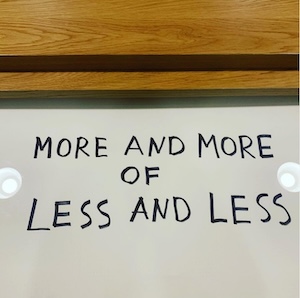 MORE AND MORE
OF
LESS AND LESS